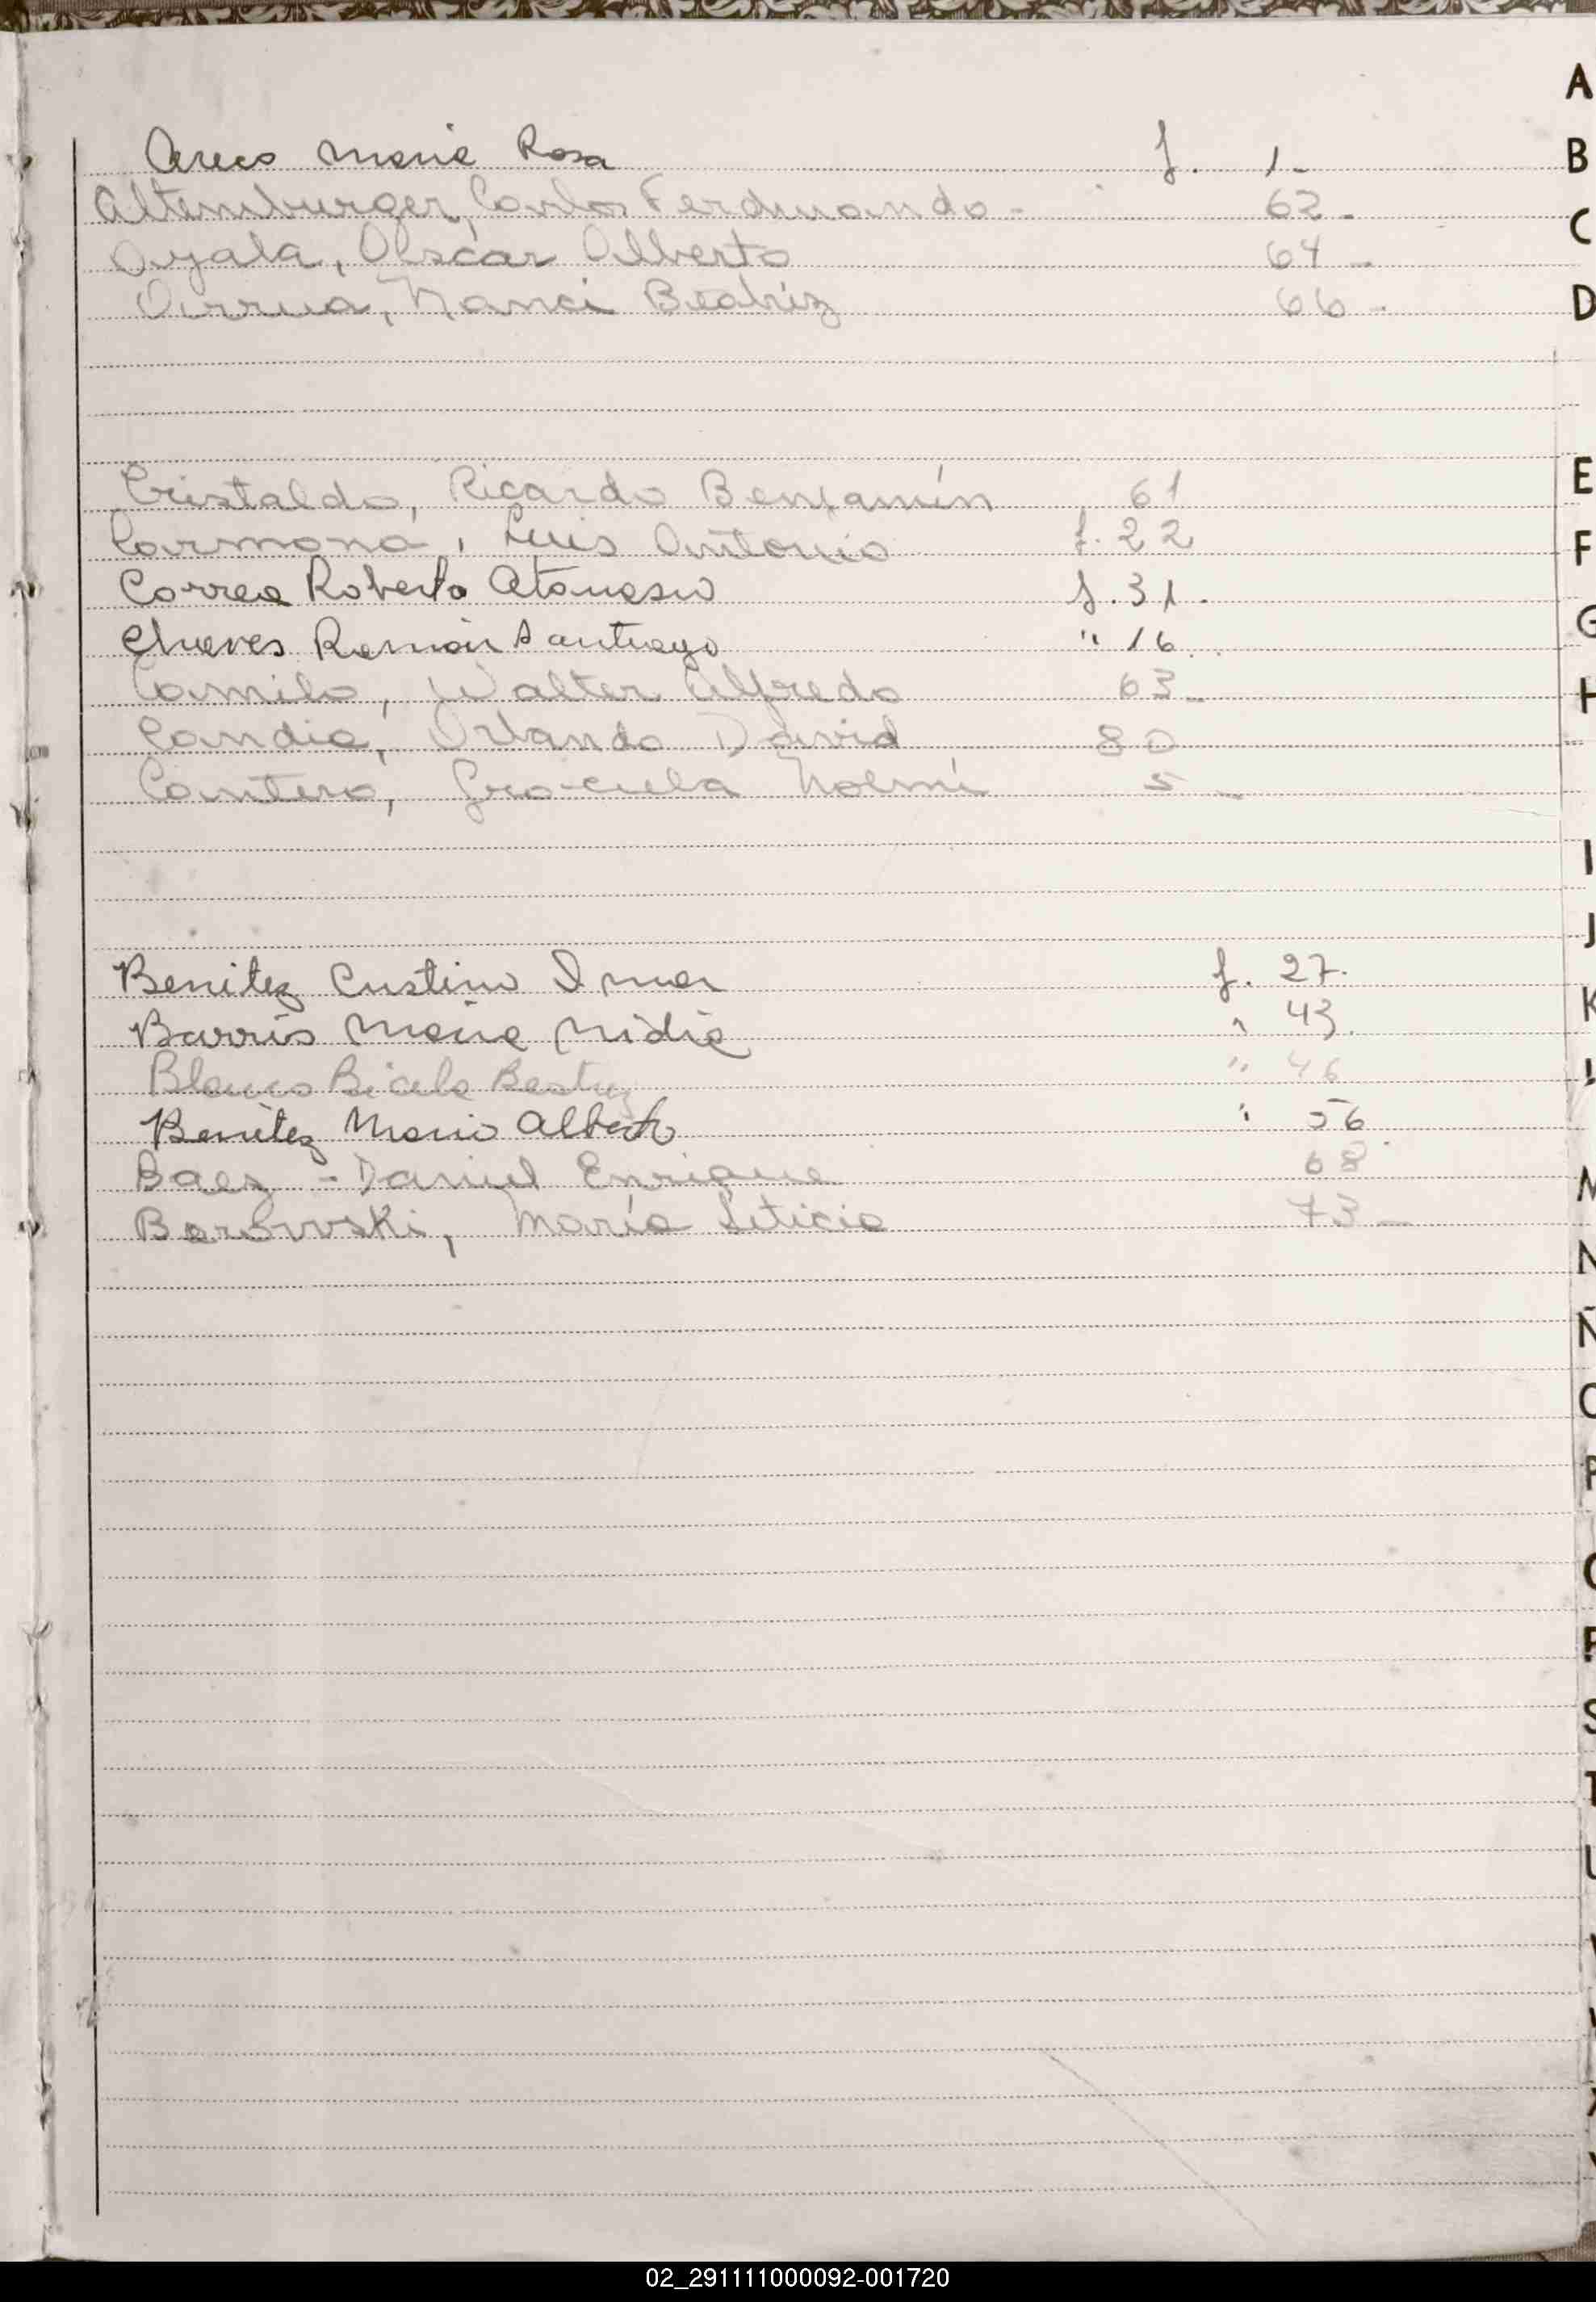 Areco Maria Rosa f. 1-
Altemburger, Carlos Ferdinando - 62-
Ayala, Oscar Alberto 64-
Verrua, Nanci Beatriz 66-
Cristaldo, Ricardo Benjamín 61
Carmona, Luis Antonio f. 22
Correa Roberto Atanasio f. 31.
Chaves Ramón Santiago " 16
Camilo, Walter Alfredo 63-
Candia, Orlando David 80
Cantero, Graciela Noemí 5-
Benitez Cristino f. 27.
Barrios Maria Nidia " 43.
Blanco Beatriz " 46
Benitez Mario Alberto " 56
Baez - Daniel Enrique 68
Borowski, María Leticia 73-
A
B
C
D
E
F
G
H
I
J
K
L
M
N
Ñ
O
P
Q
R
S
T
U
V
X
Y
02_291111000092-001720